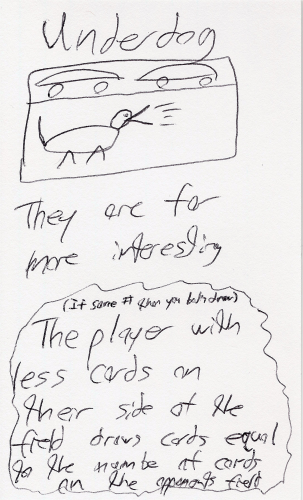 Underdog
They are far
more interesting
(If same # then you both draw)
The player with
less cards on
their side of the
field draws cards equal
to the number of cards
on the opponents field